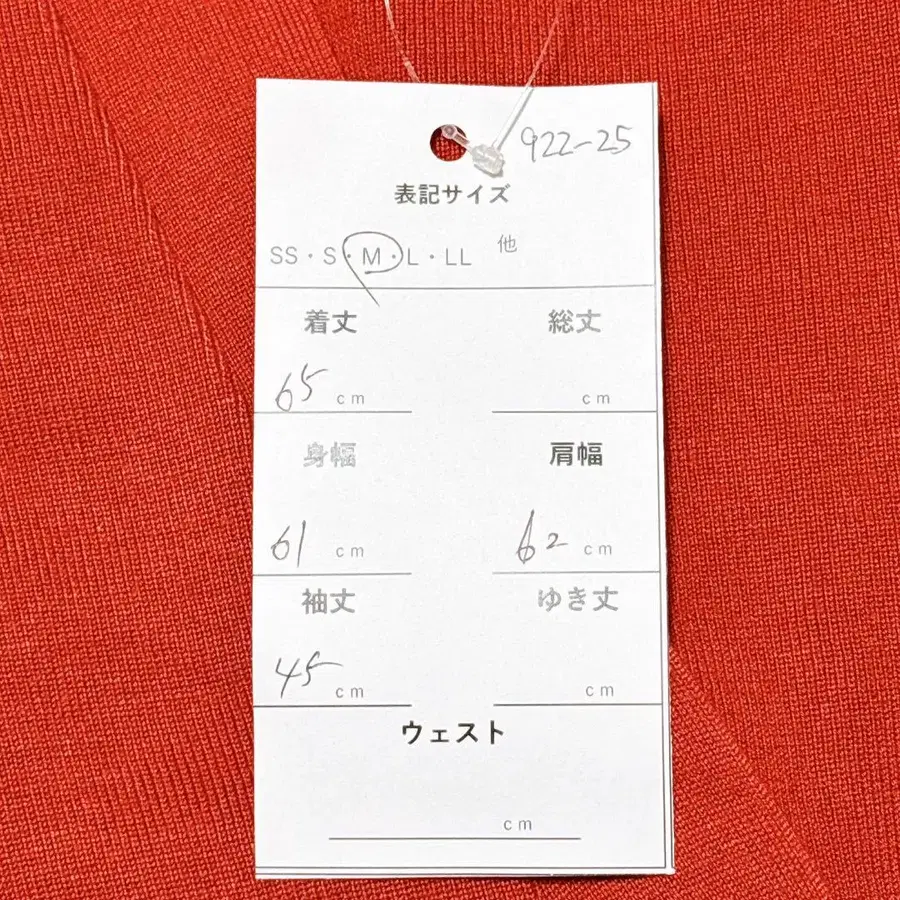 922-25
表記サイズ
SS・S・M・L・LL 他
着丈 総丈
65 cm cm
身幅 肩幅
61 cm 62 cm
袖丈 ゆき丈
45 cm cm
ウェスト
cm